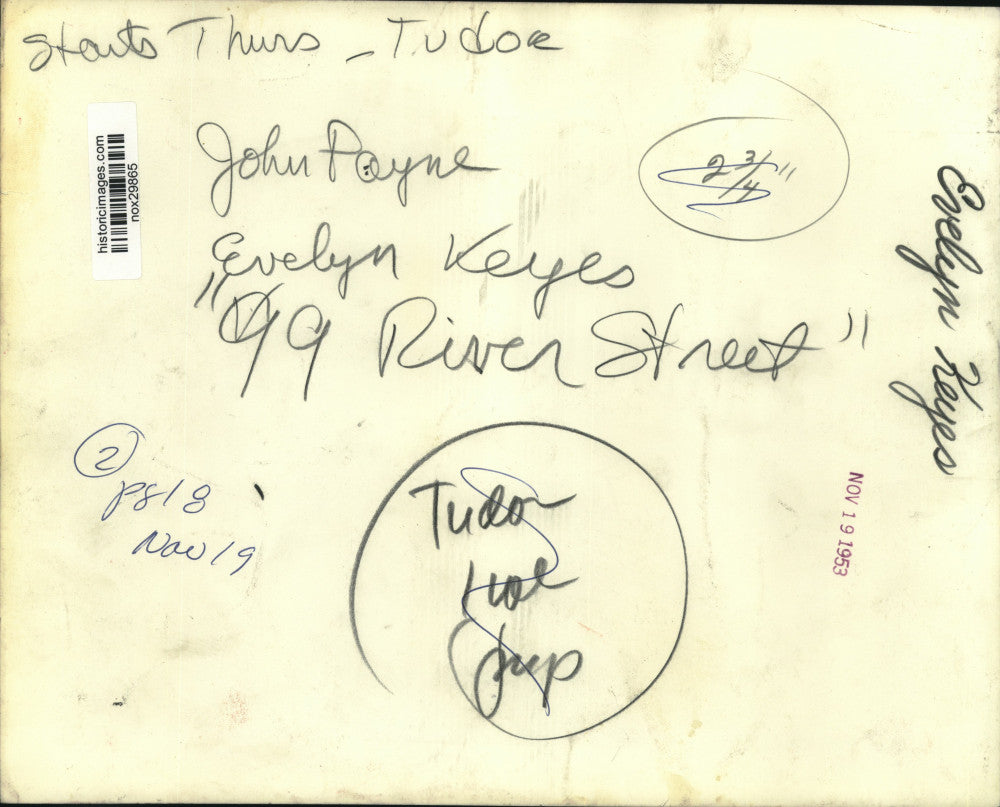 Starts Thurs - Tudor
historicimages.com
nox29865
John Payne
Evelyn Keyes
"99 River Street"
2 3/4"
Evelyn Keyes
2
P818
Nov 19
Tudor
NOV 19 1953